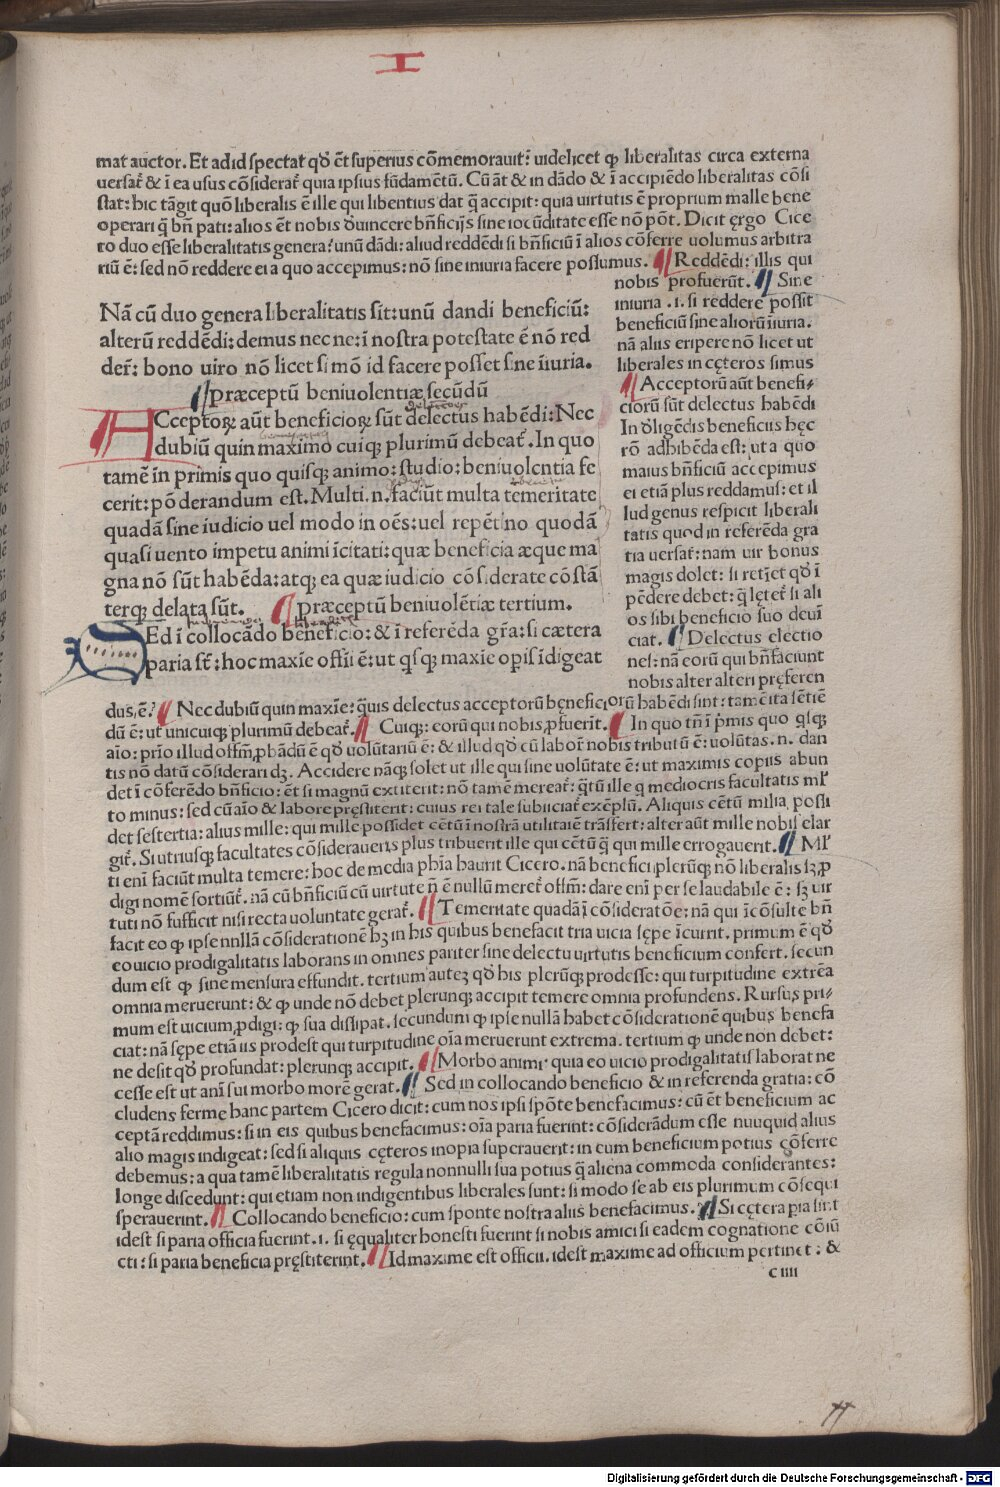 I
mat auctor. Et ad id spectat qđ ēt superius cōmemorauit: uidelicet ꝙ liberalitas circa externa
uersat̃ & ī ea usus cōsiderat̃ quia ipsius fūdamētū. Cū āt & in dādo & ī accipiēdo liberalitas cōsi
stat: hic tāgit quō liberalis ē ille qui libentius dat q̄ accipit: quia uirtutis ē proprium malle bene
operari q̄ bñ pati: alios ēt nobis đuincere bñficijs sine iocūditate esse nō pōt. Dicit ęrgo Cice
ro duo esse liberalitatis genera: unū dādi: aliud reddēdi si bñficiū ī alios cōferre uolumus arbitra
riū ē: sed nō reddere ei a quo accepimus: nō sine iniuria facere possumus. ¶ Reddēdi: illis qui
nobis profuerūt. ¶ Sine
iniuria .i. si reddere possit
beneficiū sine aliorū īiuria.
nā alius eripere nō licet ut
liberales in cęteros simus
¶ Acceptorū aūt benefi-
ciorū sūt delectus habēdi
In đligēdis beneficiis hęc
rō adhibēda est: ut a quo
maius bñficiū accepimus
ei etiā plus reddamus: et il
lud genus respicit liberali
tatis quod in referēda gra
tia uersat̃: nam uir bonus
magis dolet: si retīet qđ ī
pēdere debet: q̄ lętet̃ si ali
os sibi beneficio suo deuī
ciat. ¶ Delectus electio
nes: nā eorū qui bñfaciunt
nobis alter alteri pręferen
Nā cū duo genera liberalitatis sit: unū dandi beneficiū:
alterū reddēdi: demus nec ne: ī nostra potestate ē nō red
der̃: bono uiro nō licet si mō id facere posset sine īiuria.
¶ præceptū beniuolentiæ secūdū
ACceptoꝝ aūt beneficioꝝ sūt delectus habēdi: Nec
dubiū quin maximo cuiqꝫ plurimū debeat̃. In quo
tamē in primis quo quisqꝫ animo: studio: beniuolentia fe
cerit: pōderandum est. Multi .n. faciūt multa temeritate
quadā sine iudicio uel modo in oēs: uel repētino quodā
quasi uento impetu animi īcitati: quæ beneficia æque ma
gna nō sūt habēda: atqꝫ ea quæ iudicio cōsiderate cōstā
terqꝫ delata sūt. ¶ præceptū beniuolētiæ tertium.
SEd ī collocādo beneficio: & ī referēda gr̄a: si cætera
paria st̃: hoc maxīe offīi ē: ut qsqꝫ maxīe opis īdigeat
dus ē. ¶ Nec dubiū quin maxīe: q̄uis delectus acceptorū bęneficiorū habēdi sint: tamē ita sētiē
dū ē: ut unicuiqꝫ plurimū debeat̃. ¶ Cuiqꝫ: eorū qui nobis ꝓfuerīt. ¶ In quo tn̄ ī p̄mis quo qsqꝫ
aīo: prīo illud offm̄ ꝓbādū ē qđ uolūtariū ē: & illud qđ cū labor̃ nobis tributū ē: uolūtas .n. dan
tis nō datū cōsiderari dꝫ. Accidere nāqꝫ solet ut ille qui sine uolūtate ē: ut maximis copiis abun
det ī cōferēdo bñficio: ēt si magnū extiterit: nō tamē mereat̃: q̄tū ille q mediocris facultatis ml̃
to minus: sed cū aīo & labore pręstiterit: cuius rei tale subiiciat̃ exēplū. Aliquis cētū milia possi
det sestertia: alius mille: qui mille possidet cētū ī nostrā utilitatē trāsfert: alter aūt mille nobis elar
git̃. Si utriusqꝫ facultates cōsideraueris plus tribuent ille qui cētū q̄ qui mille errogauerit. ¶ Ml̃
ti enī faciūt multa temere: hoc de media phīa haurit Cicero. nā benefici plerūqꝫ nō liberalis sꝫ ꝓ
digi nomē sortiūt̃. nā cū bñficiū cū uirtute ñ ē nullū meret̃ offm̄: dare enī per se laudabile ē: sꝫ uir
tuti nō sufficit nisi recta uoluntate gerat̃. ¶ Temeritate quadā ī cōsideratōe: nā qui īcōsulte bñ
facit eo ꝙ ipse nnllā cōsiderationē hꝫ in his quibus benefacit tria uicia sępe īcurrit. primum ē qđ
eo uicio prodigalitatis laborans in omnes pariter sine delectu uirtutis beneficium confert. secun
dum est ꝙ sine mensura effundit. tertium autez qđ his plerūqꝫ prodesse: qui turpitudine extrēa
omnia meruerunt: & ꝙ unde nō debet plerunqꝫ accipit temere omnia profundens. Rursus pri-
mum est uicium ꝓdigi: ꝙ sua dissipat. secundum ꝙ ipse nullā habet cōsiderationē quibus benefa
ciat: nā sępe etiā iis prodest qui turpitudine oīa meruerunt extrema. tertium ꝙ unde non debet:
ne desit qđ profundat: plerunqꝫ accipit. ¶ Morbo animi: quia eo uicio prodigalitatis laborat ne
cesse est ut anī sui morbo morē gerat. ¶ Sed in collocando beneficio & in referenda gratia: cō
cludens ferme hanc partem Cicero dicit: cum nos ipsi spōte benefacimus: cū ēt beneficium ac
ceptā reddimus: si in eis quibus benefacimus: oīa paria fuerint: cōsiderādum esse nuuquid alius
alio magis indigeat: sed si aliquis cęteros inopia superauerit: in eum beneficium potius cōferre
debemus: a qua tamē liberalitatis regula nonnulli sua potius q̄ aliena commoda considerantes:
longe discedunt: qui etiam non indigentibus liberales sunt: si modo se ab eis plurimum cōsequi
sperauerint. ¶ Collocando beneficio: cum sponte nostra alius benefacimus. ¶ Si cętera paria sint
idest si paria officia fuerint .i. si ęqualiter honesti fuerint si nobis amici si eadem cognatione cōiū
cti: si paria beneficia pręstiterint. ¶ Id maxime est officii. idest maxime ad officium pertinet: &
c iiii
Digitalisierung gefördert durch die Deutsche Forschungsgemeinschaft - DFG